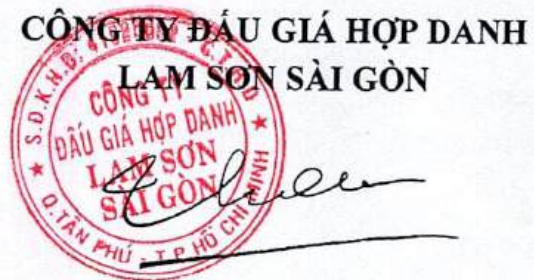 CÔNG TY ĐẤU GIÁ HỢP DANH
LAM SƠN SÀI GÒN
S.D.K.H.Đ:
CÔNG TY
ĐẤU GIÁ HỢP DANH
LAM SƠN
SÀI GÒN
Q.TÂN PHÚ - T.P HỒ CHÍ MINH